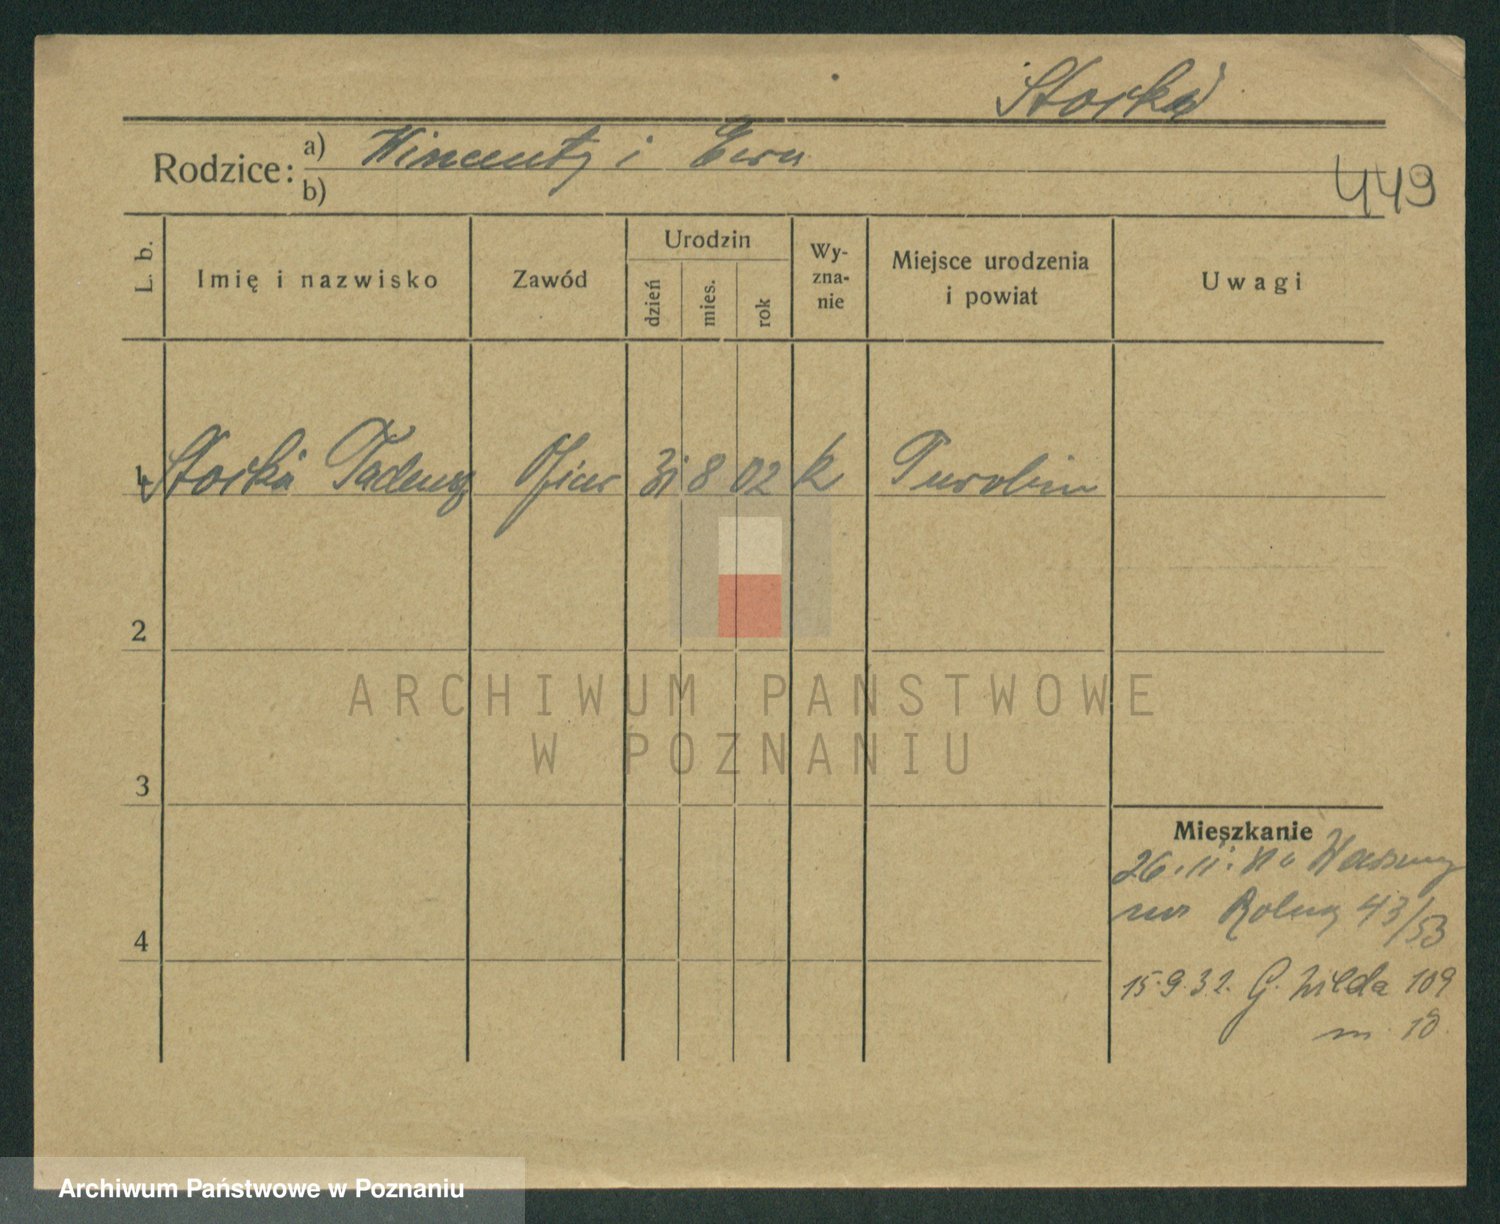 Storka
Rodzice: a) Wincenty i Ewa
b)
449
L. b.
Imię i nazwisko
Zawód
Urodzin
dzień
mies.
rok
Wy-
zna-
nie
Miejsce urodzenia
i powiat
Uwagi
1 Storka Tadeusz Oficer 31 8 02 k Turobin
2
3
4
Mieszkanie
26.11. Warszawy
Rolną 43/53
15.9.32. G. Wilda 109
m. 10
ARCHIWUM PANSTWOWE
W POZNANIU
Archiwum Państwowe w Poznaniu